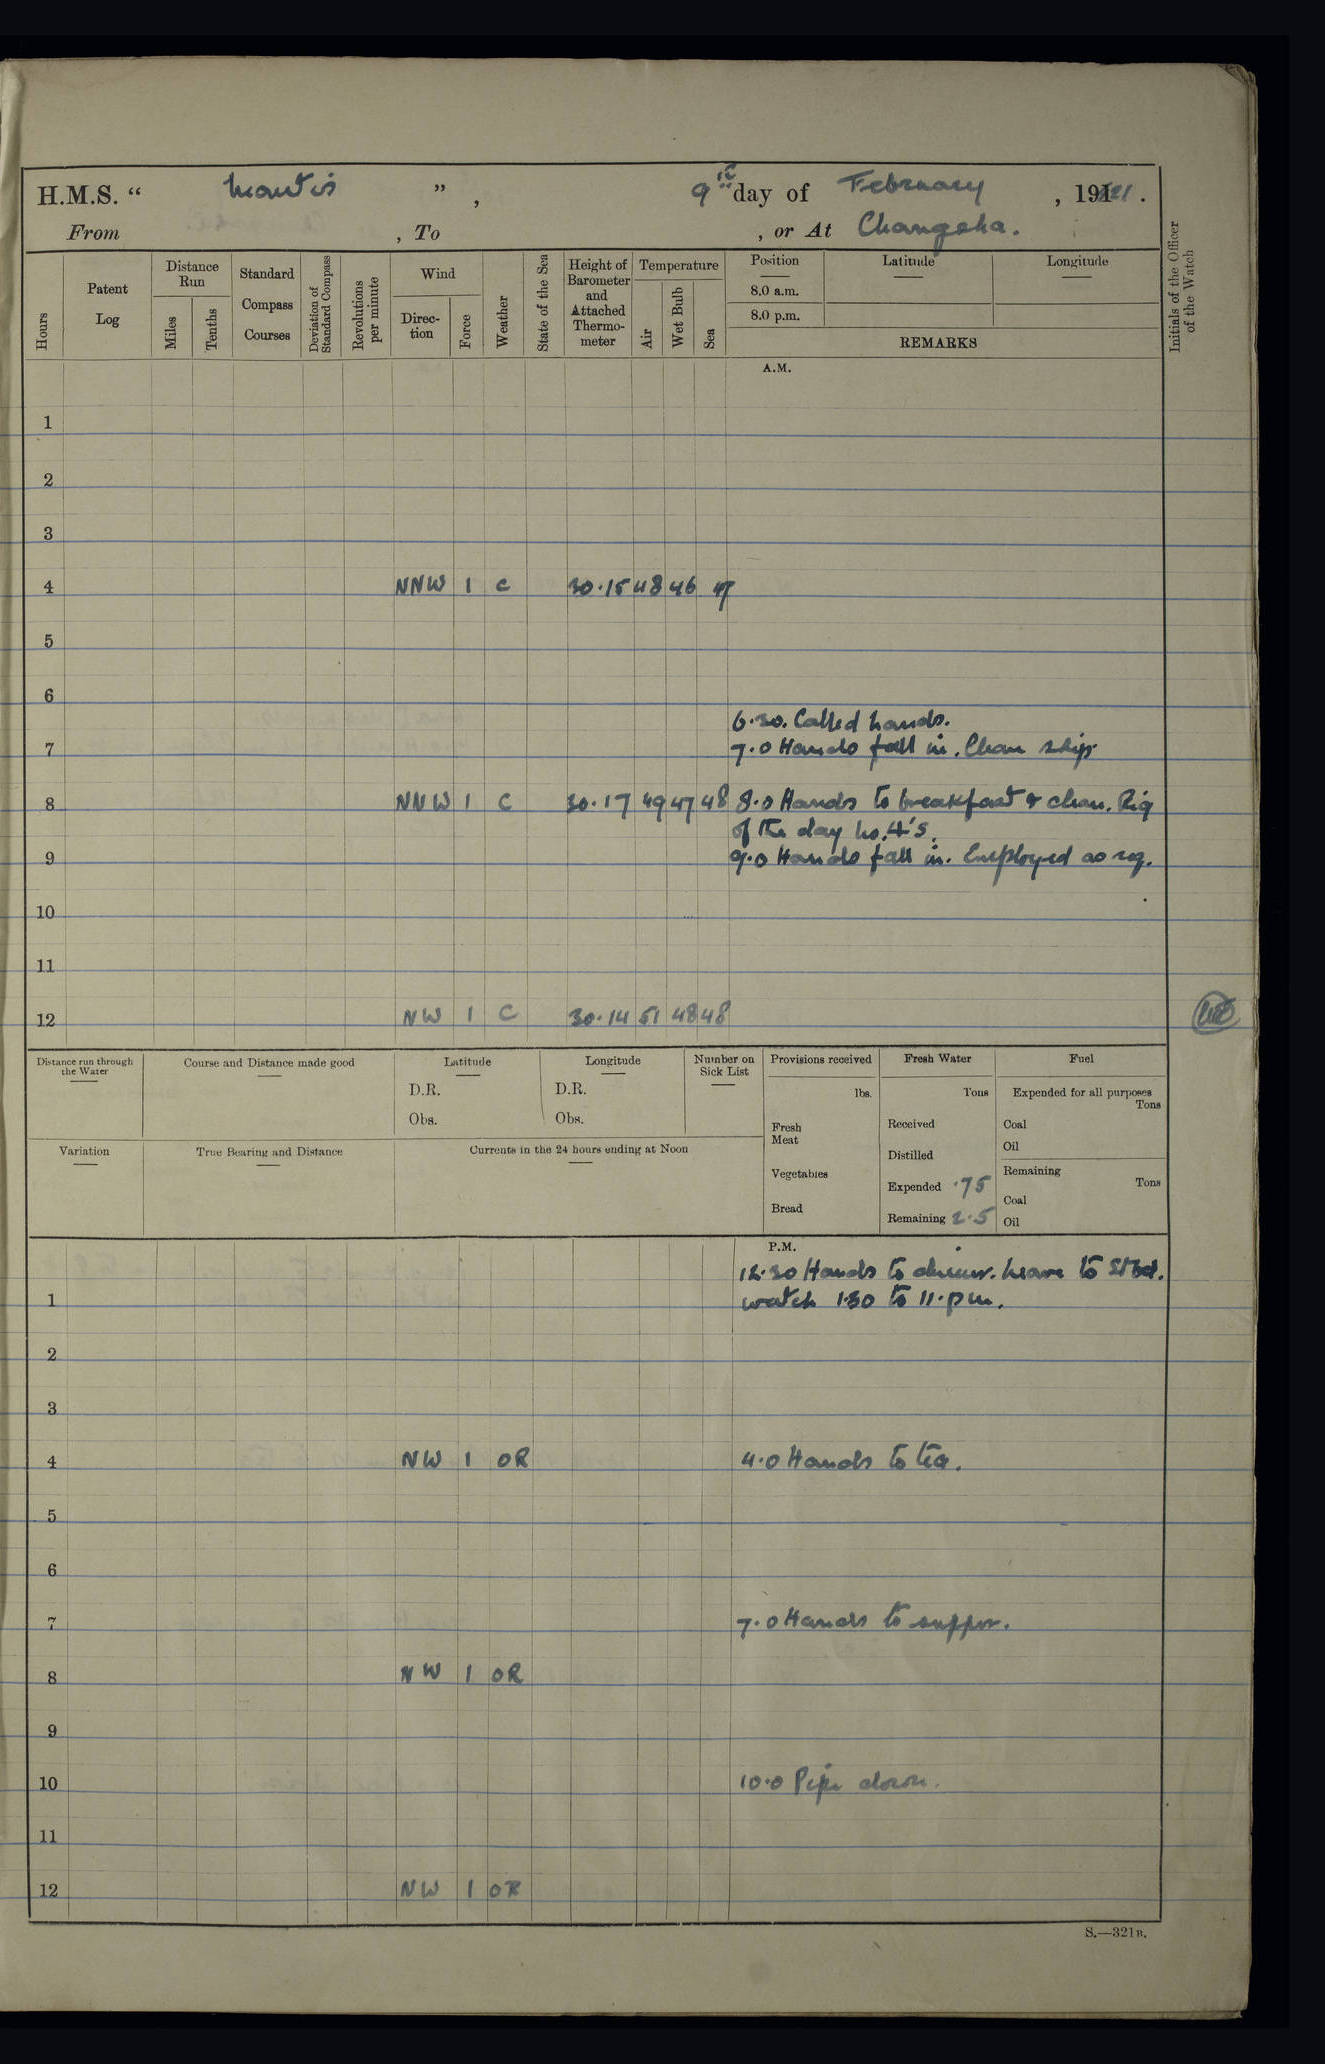 H.M.S. “ Mantis ” , 9th day of February , 191 21 .
From , To , or At Changsha.
Hours
Patent Log
Distance Run
Miles
Tenths
Standard Compass Courses
Deviation of Standard Compass
Revolutions per minute
Wind
Direc-tion
Force
Weather
State of the Sea
Height of Barometer and Attached Thermo-meter
Temperature
Air
Wet Bulb
Sea
Position Latitude Longitude
8.0 a.m.
8.0 p.m.
REMARKS
Initials of the Officer of the Watch
A.M.
1
2
3
4 NNW 1 C 30.15 48 46 47
5
6
6.30. Called hands.
7 7.0 Hands fall in. Clean ship.
8 NNW 1 C 30.17 49 47 48 8.0 Hands to breakfast & clean. Rig
of the day No. 4's.
9 9.0 Hands fall in. Employed as req.
10
11
12 NW 1 C 30.14 51 48 48
Distance run through the Water
Course and Distance made good
Latitude
D.R.
Obs.
Longitude
D.R.
Obs.
Number on Sick List
Provisions received
lbs.
Fresh Meat
Vegetables
Bread
Fresh Water
Tons
Received
Distilled
Expended .75
Remaining 2.5
Fuel
Expended for all purposes
Tons
Coal
Oil
Remaining
Tons
Coal
Oil
Variation
True Bearing and Distance
Currents in the 24 hours ending at Noon
P.M.
12.30 Hands to dinner. Leave to Stbd.
1 watch 1.30 to 11.pm.
2
3
4 NW 1 OR 4.0 Hands to tea.
5
6
7 7.0 Hands to supper.
8 NW 1 OR
9
10 10.0 Pipe down.
11
12 NW 1 OR
S.—321B.